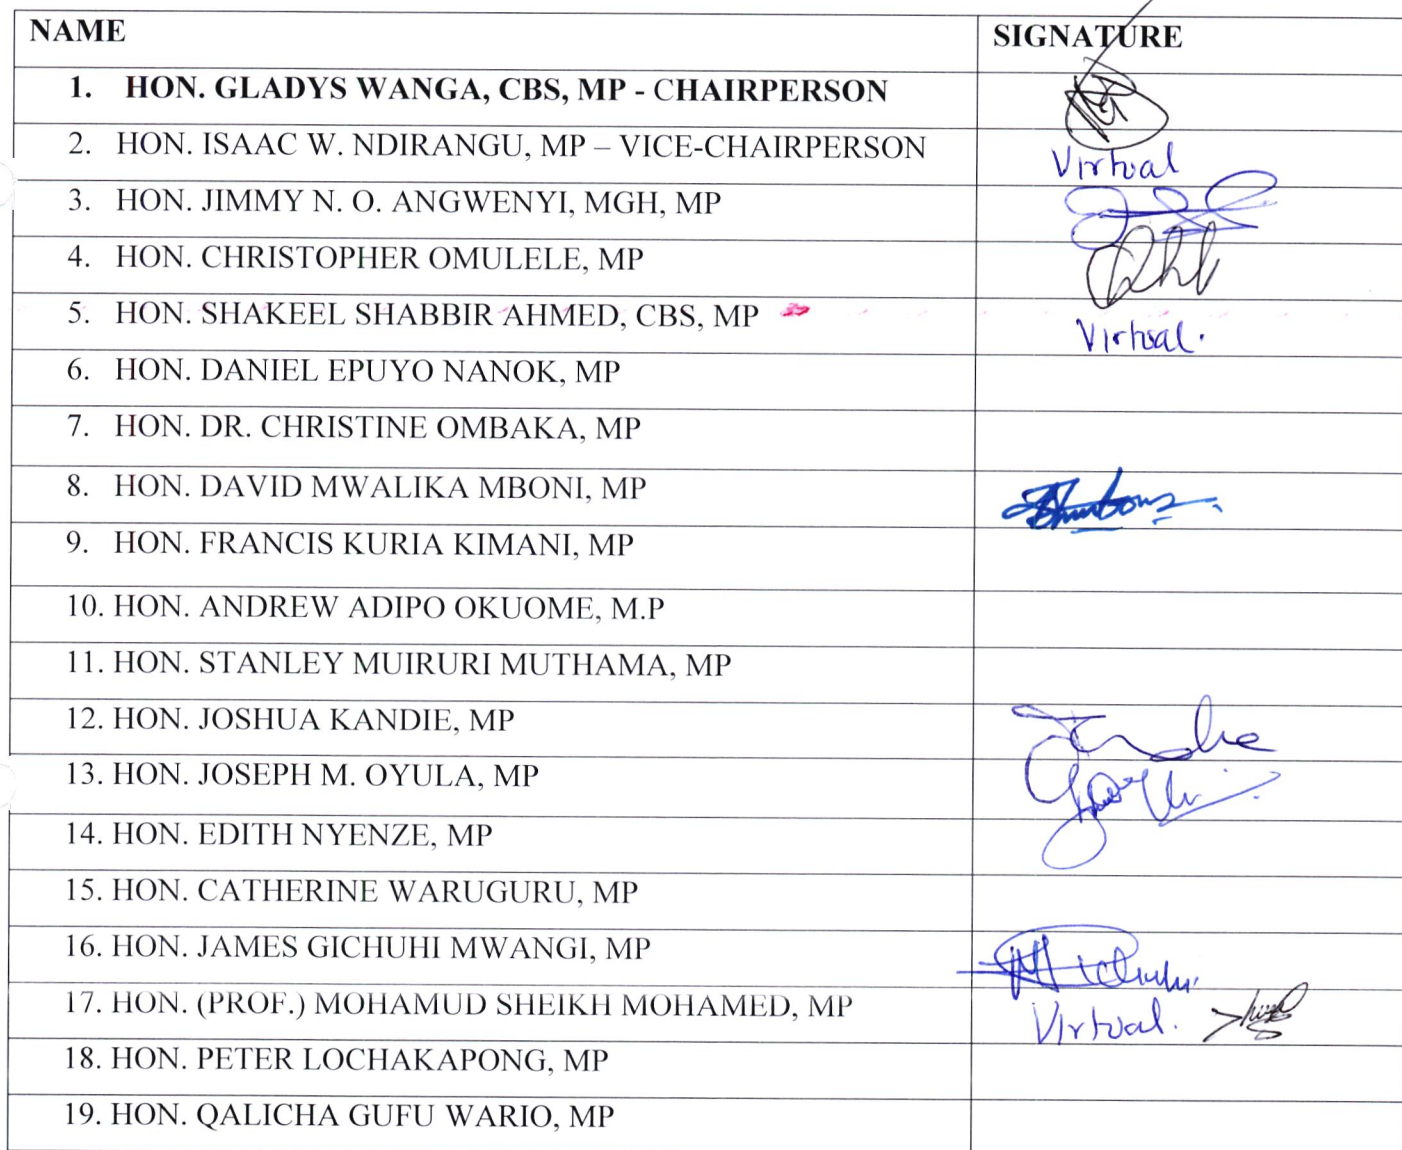 NAME SIGNATURE
1. HON. GLADYS WANGA, CBS, MP - CHAIRPERSON
2. HON. ISAAC W. NDIRANGU, MP – VICE-CHAIRPERSON Virtual
3. HON. JIMMY N. O. ANGWENYI, MGH, MP
4. HON. CHRISTOPHER OMULELE, MP
5. HON. SHAKEEL SHABBIR AHMED, CBS, MP Virtual.
6. HON. DANIEL EPUYO NANOK, MP
7. HON. DR. CHRISTINE OMBAKA, MP
8. HON. DAVID MWALIKA MBONI, MP
9. HON. FRANCIS KURIA KIMANI, MP
10. HON. ANDREW ADIPO OKUOME, M.P
11. HON. STANLEY MUIRURI MUTHAMA, MP
12. HON. JOSHUA KANDIE, MP
13. HON. JOSEPH M. OYULA, MP
14. HON. EDITH NYENZE, MP
15. HON. CATHERINE WARUGURU, MP
16. HON. JAMES GICHUHI MWANGI, MP
17. HON. (PROF.) MOHAMUD SHEIKH MOHAMED, MP Virtual.
18. HON. PETER LOCHAKAPONG, MP
19. HON. QALICHA GUFU WARIO, MP